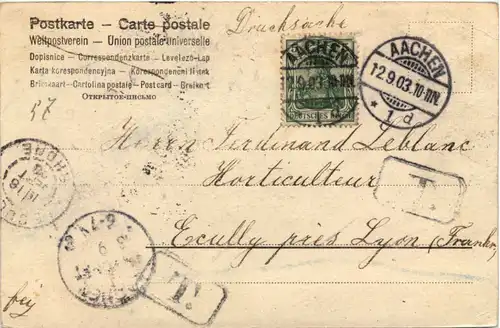 Postkarte – Carte postale
Weltpostverein – Union postale universelle
Dopisnice – Correspondenzkarte – Levelező-Lap
Karta korespondencyjna – Korespondenční lístek
Briefkaart – Cartolina postale – Postcard – Brefkort
ОТКРЫТОЕ-ПИСЬМО
Drucksache
AACHEN
12.9.03.10-11N.
DEUTSCHES REICH
AACHEN
12.9.03.10-11N.
* 1 d
57
Herrn Ferdinand Leblanc
Horticulteur
T.
Ecully près Lyon (Frankr.)
T.